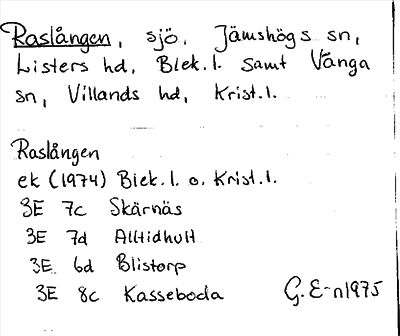 Raslången, sjö, Jämshögs sn,
Listers hd, Blek. l. samt Vånga
sn, Villands hd, Krist. l.
Raslången
ek (1974) Blek. l. o. Krist. l.
3E 7c Skärnäs
3E 7d Alltidhult
3E 6d Blistorp
3E 8c Kasseboda G. E-n 1975